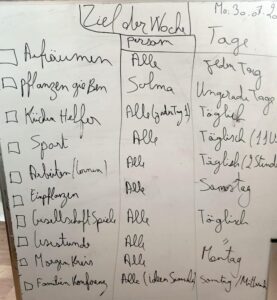 Ziel der Woche
Mo. 30.07.2
person
Tage
Aufräumen Alle Jeder Tag
Pflanzen gießen Solma Ungerade Tage
Küchen Helfer Alle (jeden Tag 1) Täglich
Sport Alle Täglisch (1
Arbeiten (lernen) Alle Täglich (2 Stund
Einpflanzen Alle Samstag
Gesellschaft Spiele Alle Täglisch
Alle "
Morgen Kreis Alle Montag
Familien Konferenz Alle Samstag / Mittwoch